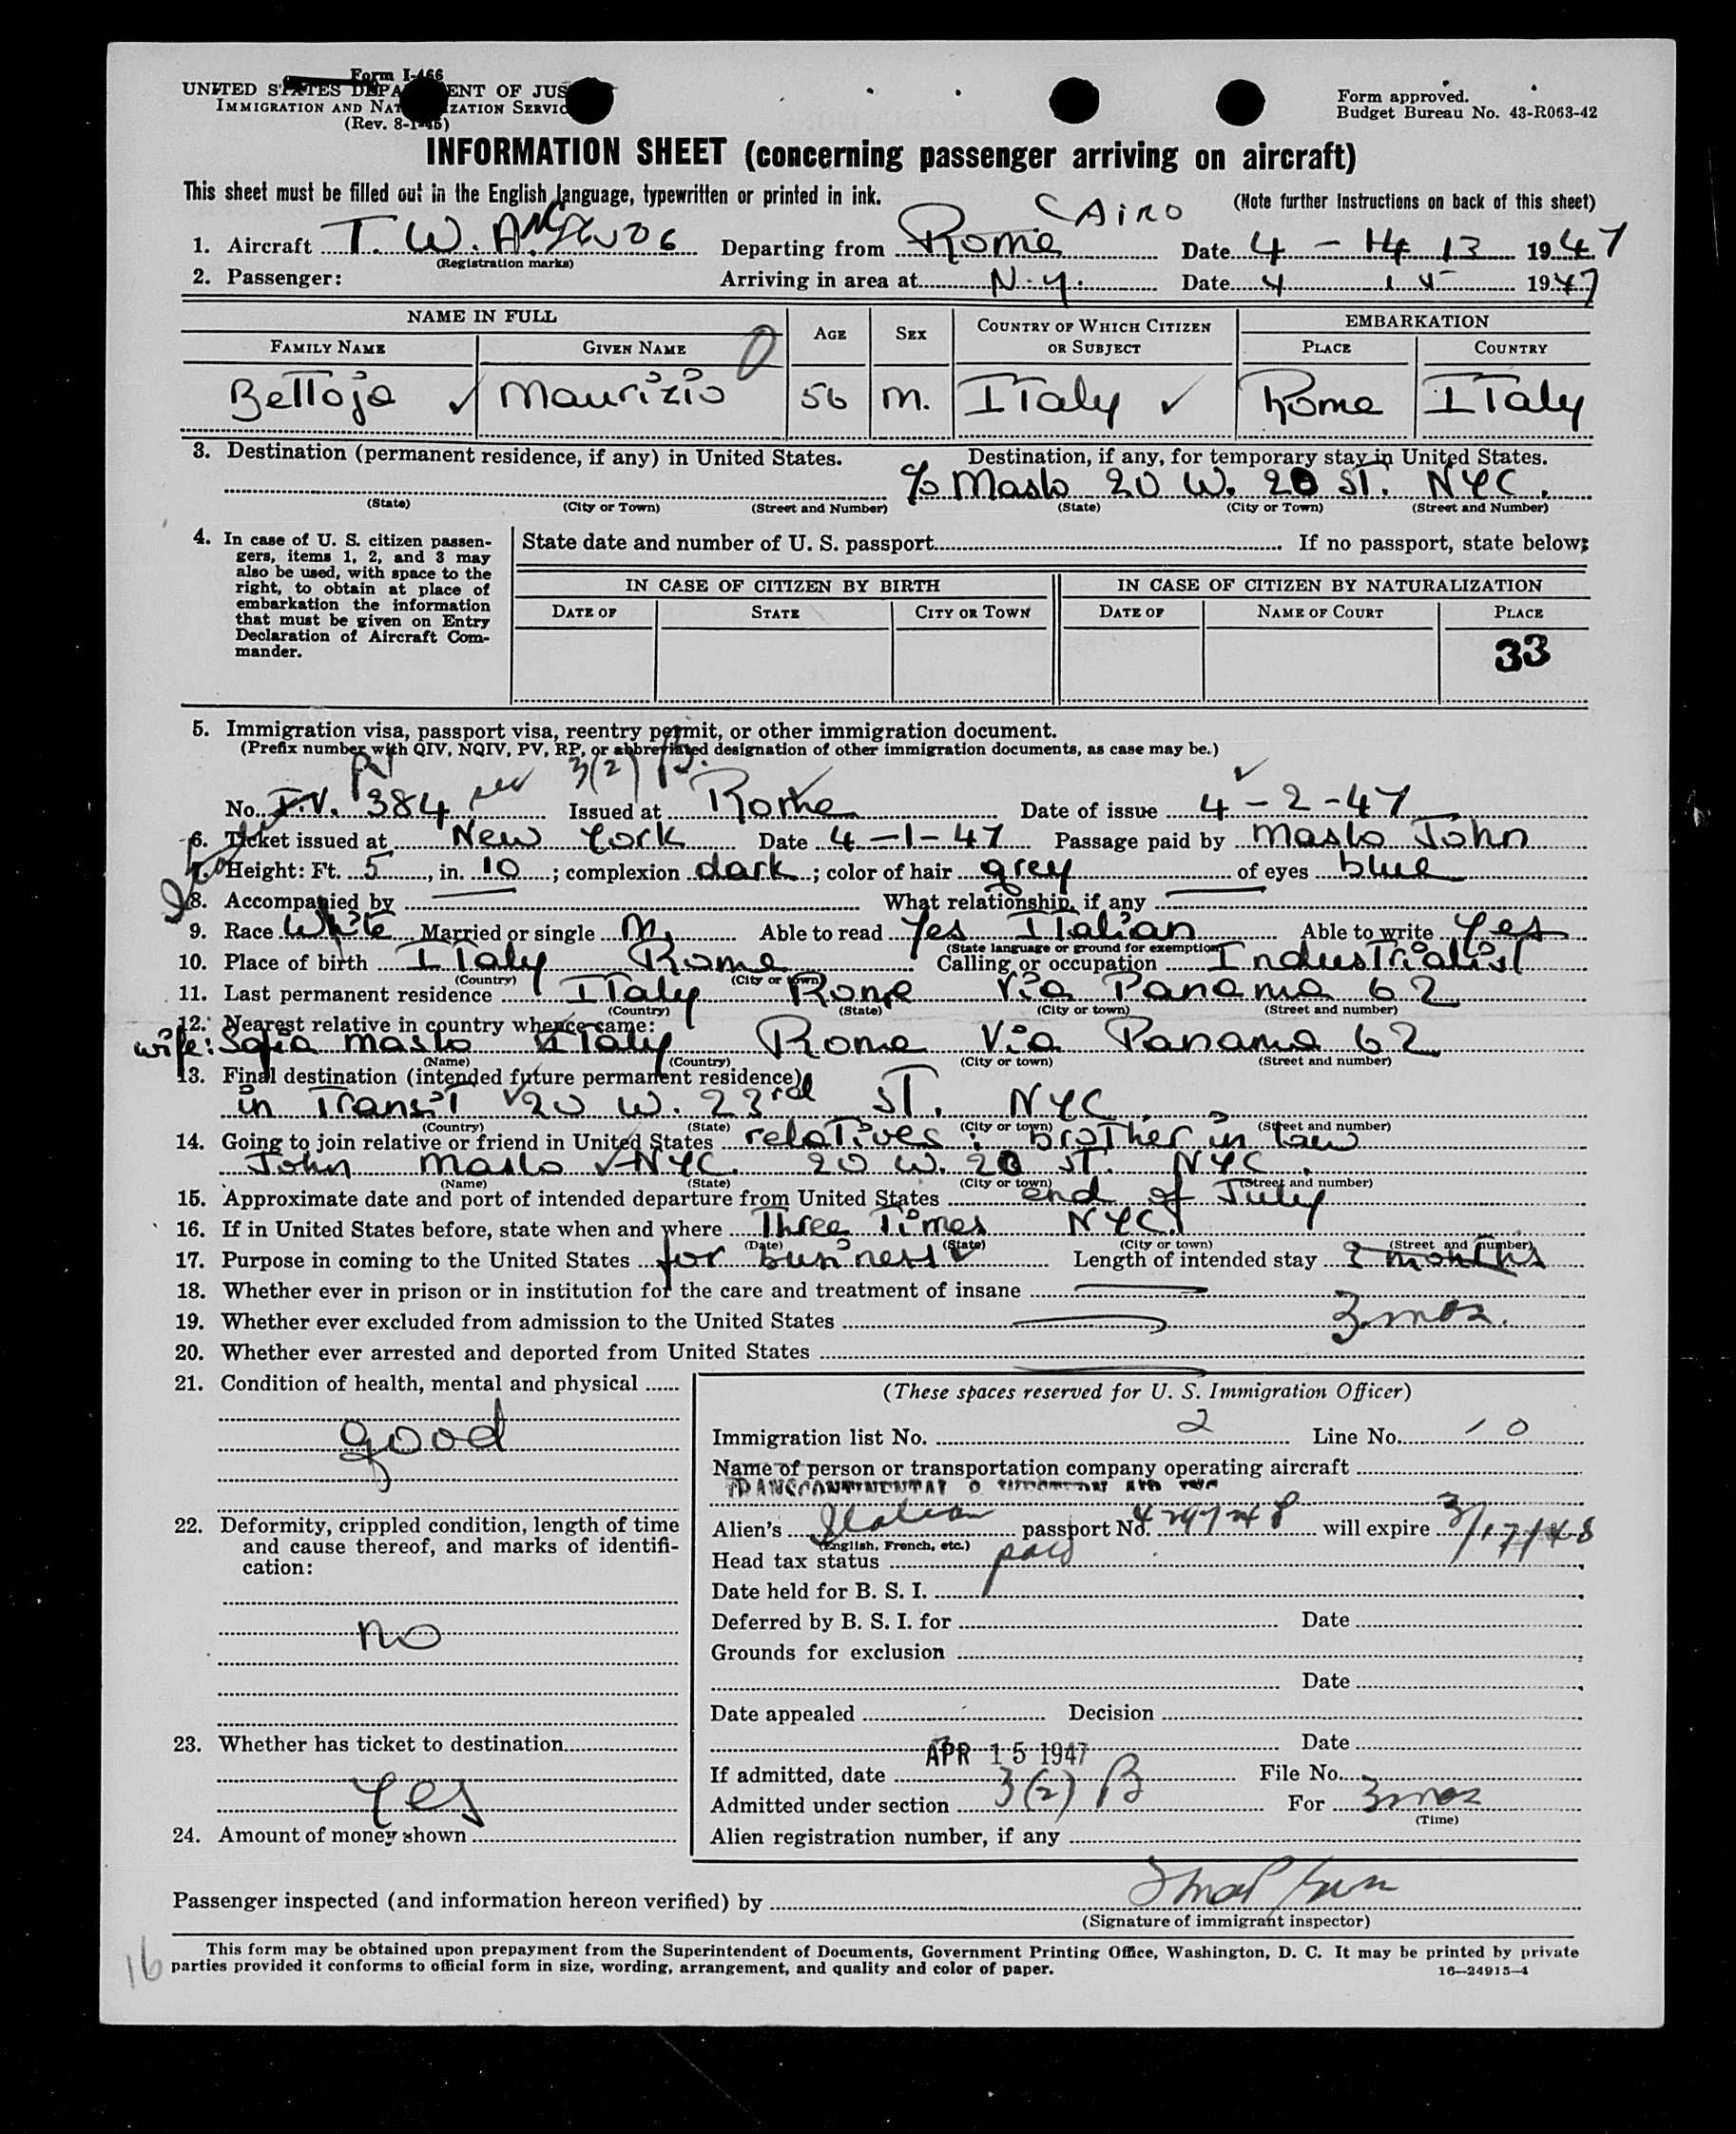 Form I-466
UNITED STATES DEPARTMENT OF JUS
IMMIGRATION AND NATURALIZATION SERVIC
(Rev. 8-1-45)
Form approved.
Budget Bureau No. 43-R063-42
INFORMATION SHEET (concerning passenger arriving on aircraft)
This sheet must be filled out in the English language, typewritten or printed in ink.
(Note further instructions on back of this sheet)
CAIRO
1. Aircraft T. W. A. Departing from Rome Date 4 - 14 13 1947
(Registration marks)
2. Passenger: Arriving in area at N.Y. Date 4 15 1947
NAME IN FULL AGE SEX COUNTRY OF WHICH CITIZEN OR SUBJECT EMBARKATION
FAMILY NAME GIVEN NAME PLACE COUNTRY
Bettoja Maurizio 56 M. Italy Rome Italy
3. Destination (permanent residence, if any) in United States. Destination, if any, for temporary stay in United States.
c/o Maslo 20 W. 20 St. NYC.
(State) (City or Town) (Street and Number) (State) (City or Town) (Street and Number)
4. In case of U. S. citizen passen-
gers, items 1, 2, and 3 may
also be used, with space to the
right, to obtain at place of
embarkation the information
that must be given on Entry
Declaration of Aircraft Com-
mander.
State date and number of U. S. passport If no passport, state below:
IN CASE OF CITIZEN BY BIRTH IN CASE OF CITIZEN BY NATURALIZATION
DATE OF STATE CITY OR TOWN DATE OF NAME OF COURT PLACE
33
5. Immigration visa, passport visa, reentry permit, or other immigration document.
(Prefix number with QIV, NQIV, PV, RP, or abbreviated designation of other immigration documents, as case may be.)
PV 3(2) B.
No. T.V. 384 Issued at Rome Date of issue 4-2-47
6. Ticket issued at New York Date 4-1-47 Passage paid by Maslo John
7. Height: Ft. 5, in. 10; complexion dark; color of hair grey of eyes blue
8. Accompanied by What relationship, if any
9. Race White Married or single M. Able to read Yes Italian Able to write Yes
(State language or ground for exemption)
10. Place of birth Italy Rome Calling or occupation Industrialist
(Country) (City or town)
11. Last permanent residence Italy Rome Via Panama 62
(Country) (State) (City or town) (Street and number)
12. Nearest relative in country whence came:
wife: Sofia Maslo Italy Rome Via Panama 62
(Name) (Country) (City or town) (Street and number)
13. Final destination (intended future permanent residence)
in Transit 20 W. 23rd St. NYC.
(Country) (State) (City or town) (Street and number)
14. Going to join relative or friend in United States relatives: brother in law
John Maslo NYC. 20 W. 20 St. NYC.
(Name) (State) (City or town) (Street and number)
15. Approximate date and port of intended departure from United States end of July
16. If in United States before, state when and where Three Times NYC.
(Date) (State) (City or town) (Street and number)
17. Purpose in coming to the United States for business Length of intended stay 2 months
18. Whether ever in prison or in institution for the care and treatment of insane
3 mos.
19. Whether ever excluded from admission to the United States
20. Whether ever arrested and deported from United States
21. Condition of health, mental and physical
good
22. Deformity, crippled condition, length of time
and cause thereof, and marks of identifi-
cation:
no
23. Whether has ticket to destination
Yes
24. Amount of money shown
(These spaces reserved for U. S. Immigration Officer)
Immigration list No. 2 Line No. 10
Name of person or transportation company operating aircraft
TRANSCONTINENTAL & WESTERN AIR INC
Alien's Italian passport No. will expire 3/17/48
(English, French, etc.)
Head tax status paid
Date held for B. S. I.
Deferred by B. S. I. for Date
Grounds for exclusion
Date
Date appealed Decision
Date
If admitted, date APR 15 1947 File No.
Admitted under section 3(2) B For 3 mos
(Time)
Alien registration number, if any
Passenger inspected (and information hereon verified) by
(Signature of immigrant inspector)
This form may be obtained upon prepayment from the Superintendent of Documents, Government Printing Office, Washington, D. C. It may be printed by private
parties provided it conforms to official form in size, wording, arrangement, and quality and color of paper.
16—24915-4
16